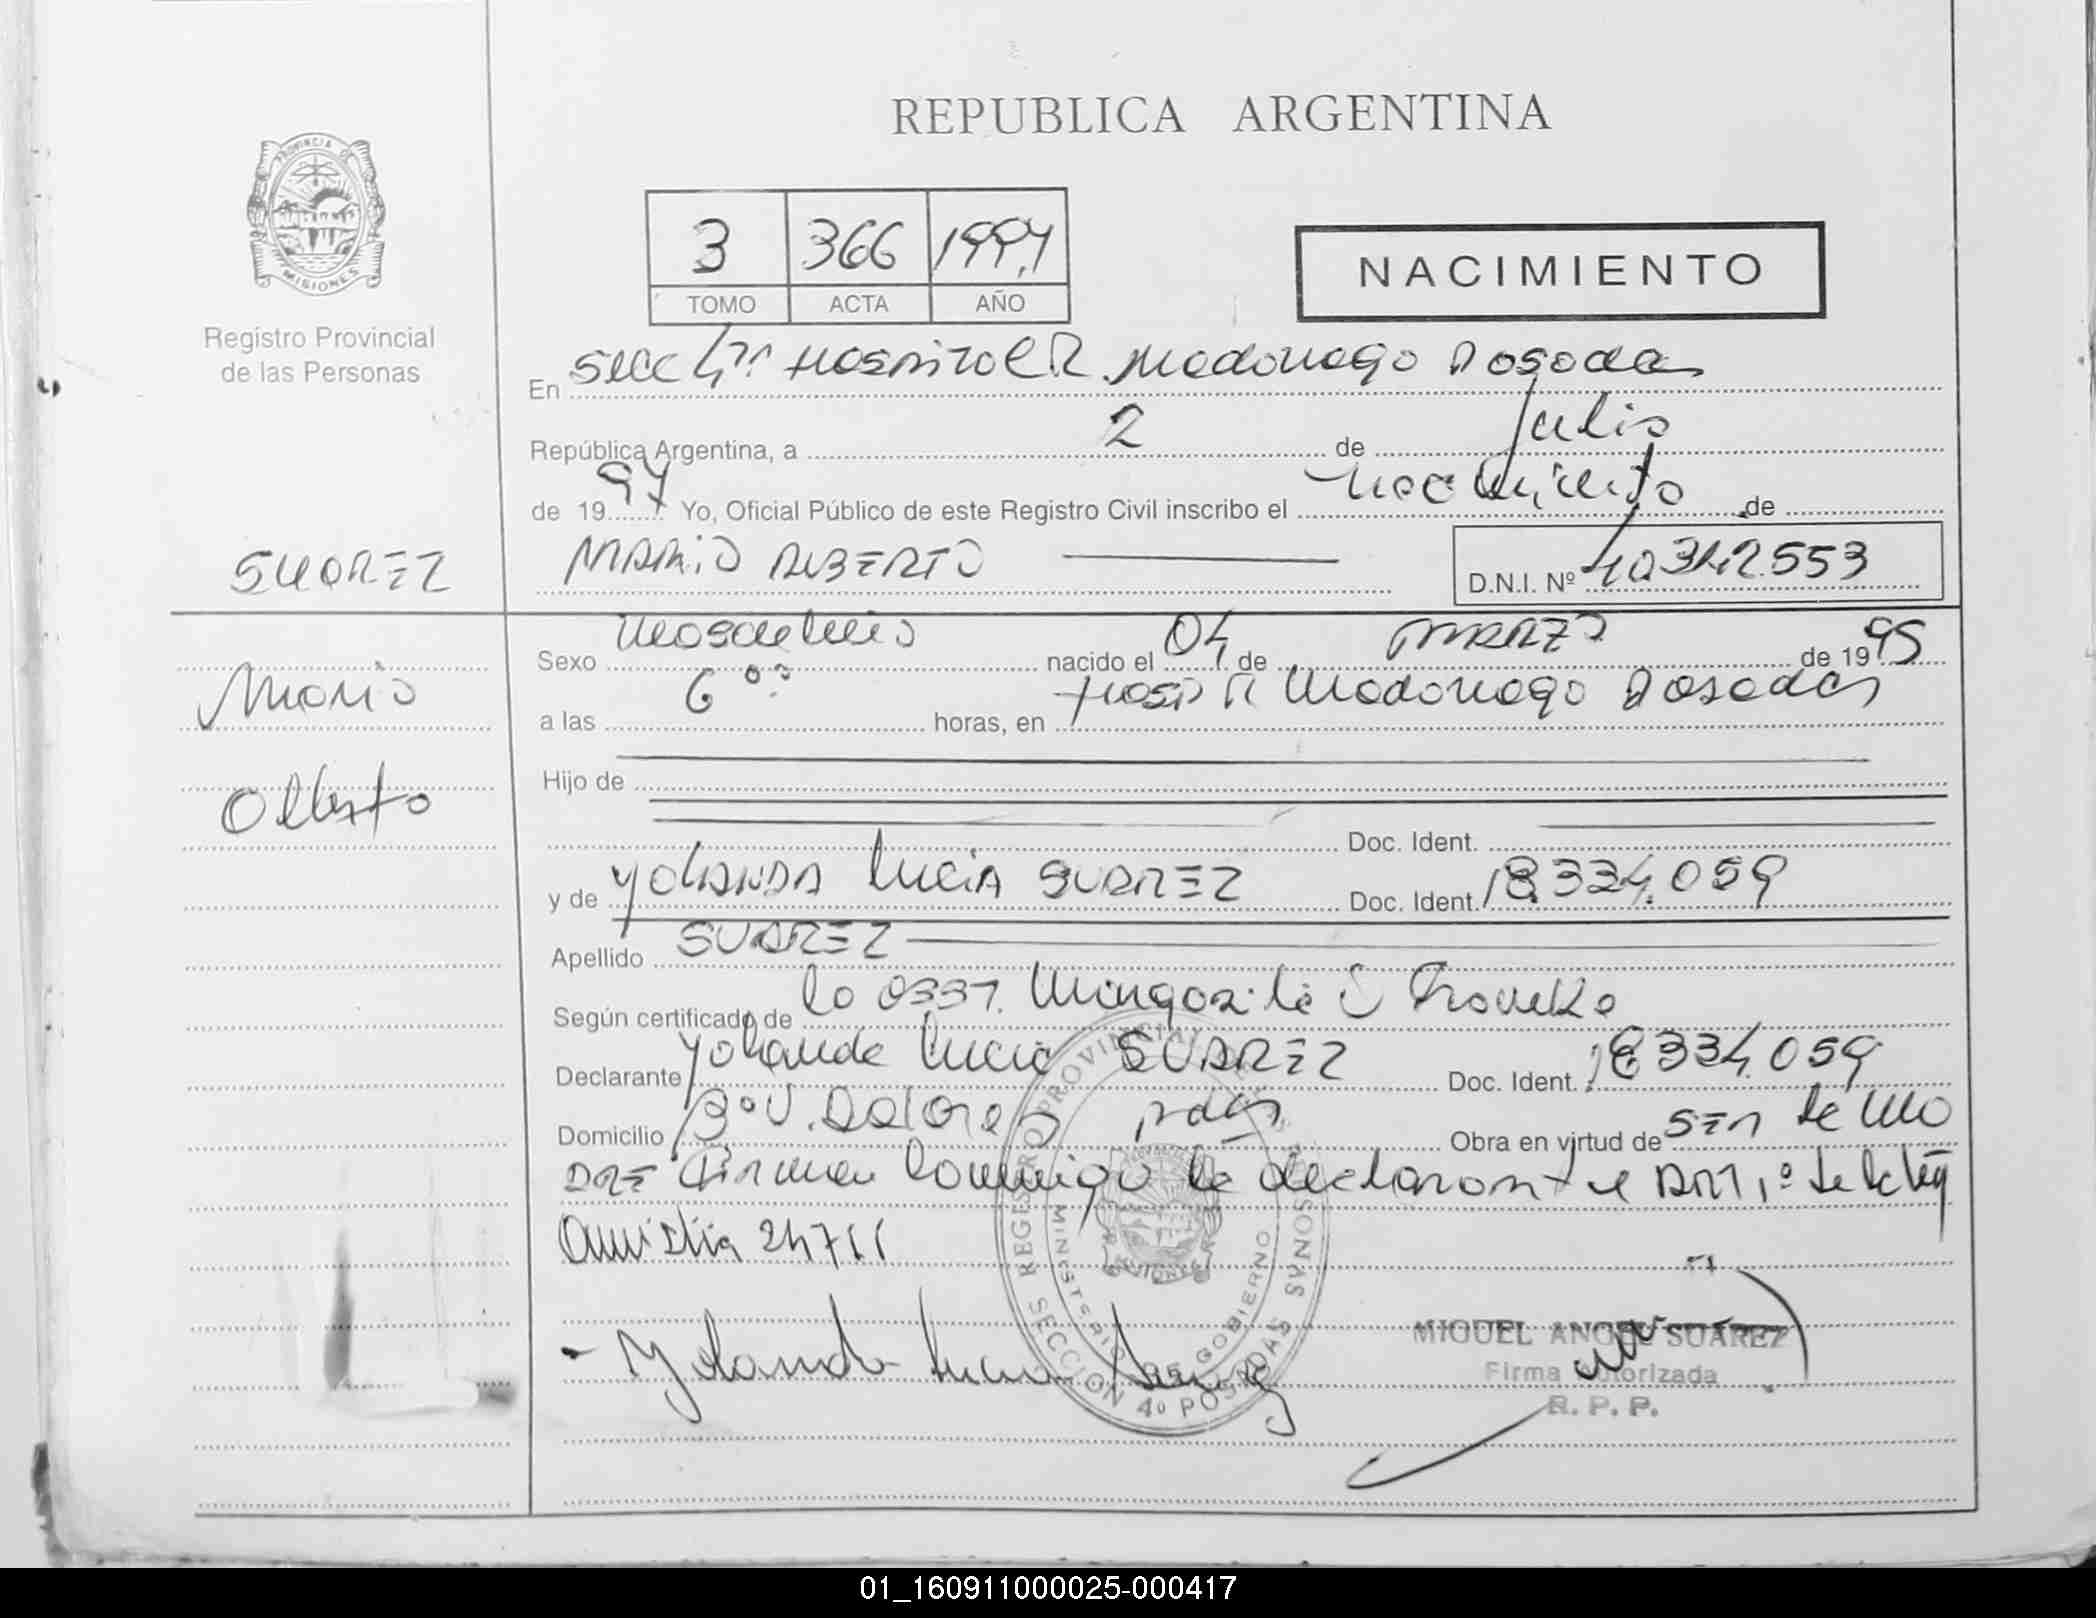 REPUBLICA ARGENTINA
PROVINCIA DE
MISIONES
Registro Provincial
de las Personas
3 366 1997
TOMO ACTA AÑO
NACIMIENTO
En Secc 4ta Hospital R. Madariaga Posadas
República Argentina, a 2 de Julio
de 1997 Yo, Oficial Público de este Registro Civil inscribo el nacimiento de
SUAREZ
MARIO ALBERTO
D.N.I. Nº 40.342.553
Mario
Alberto
Sexo masculino nacido el 04 de MARZO de 1995
a las 6 oo horas, en Hosp R Madariaga Posadas
Hijo de
Doc. Ident.
y de YOLANDA LUCIA SUAREZ Doc. Ident. 18.334.059
Apellido SUAREZ
Según certificado de la
Declarante Yolanda Lucia SUAREZ Doc. Ident. 18334.059
Domicilio Bº V. Dolores pdas Obra en virtud de SER la MA
DRE Firma conmigo la declarante ART 1º de la ley
Amnistia
REGISTRO PROVINCIAL DE LAS PERSONAS
MINISTERIO DE GOBIERNO
SECCION 4º POSADAS
MISIONES
Yolanda Lucia Suarez
MIGUEL ANGEL SUAREZ
Firma Autorizada
R. P. P.
01_160911000025-000417